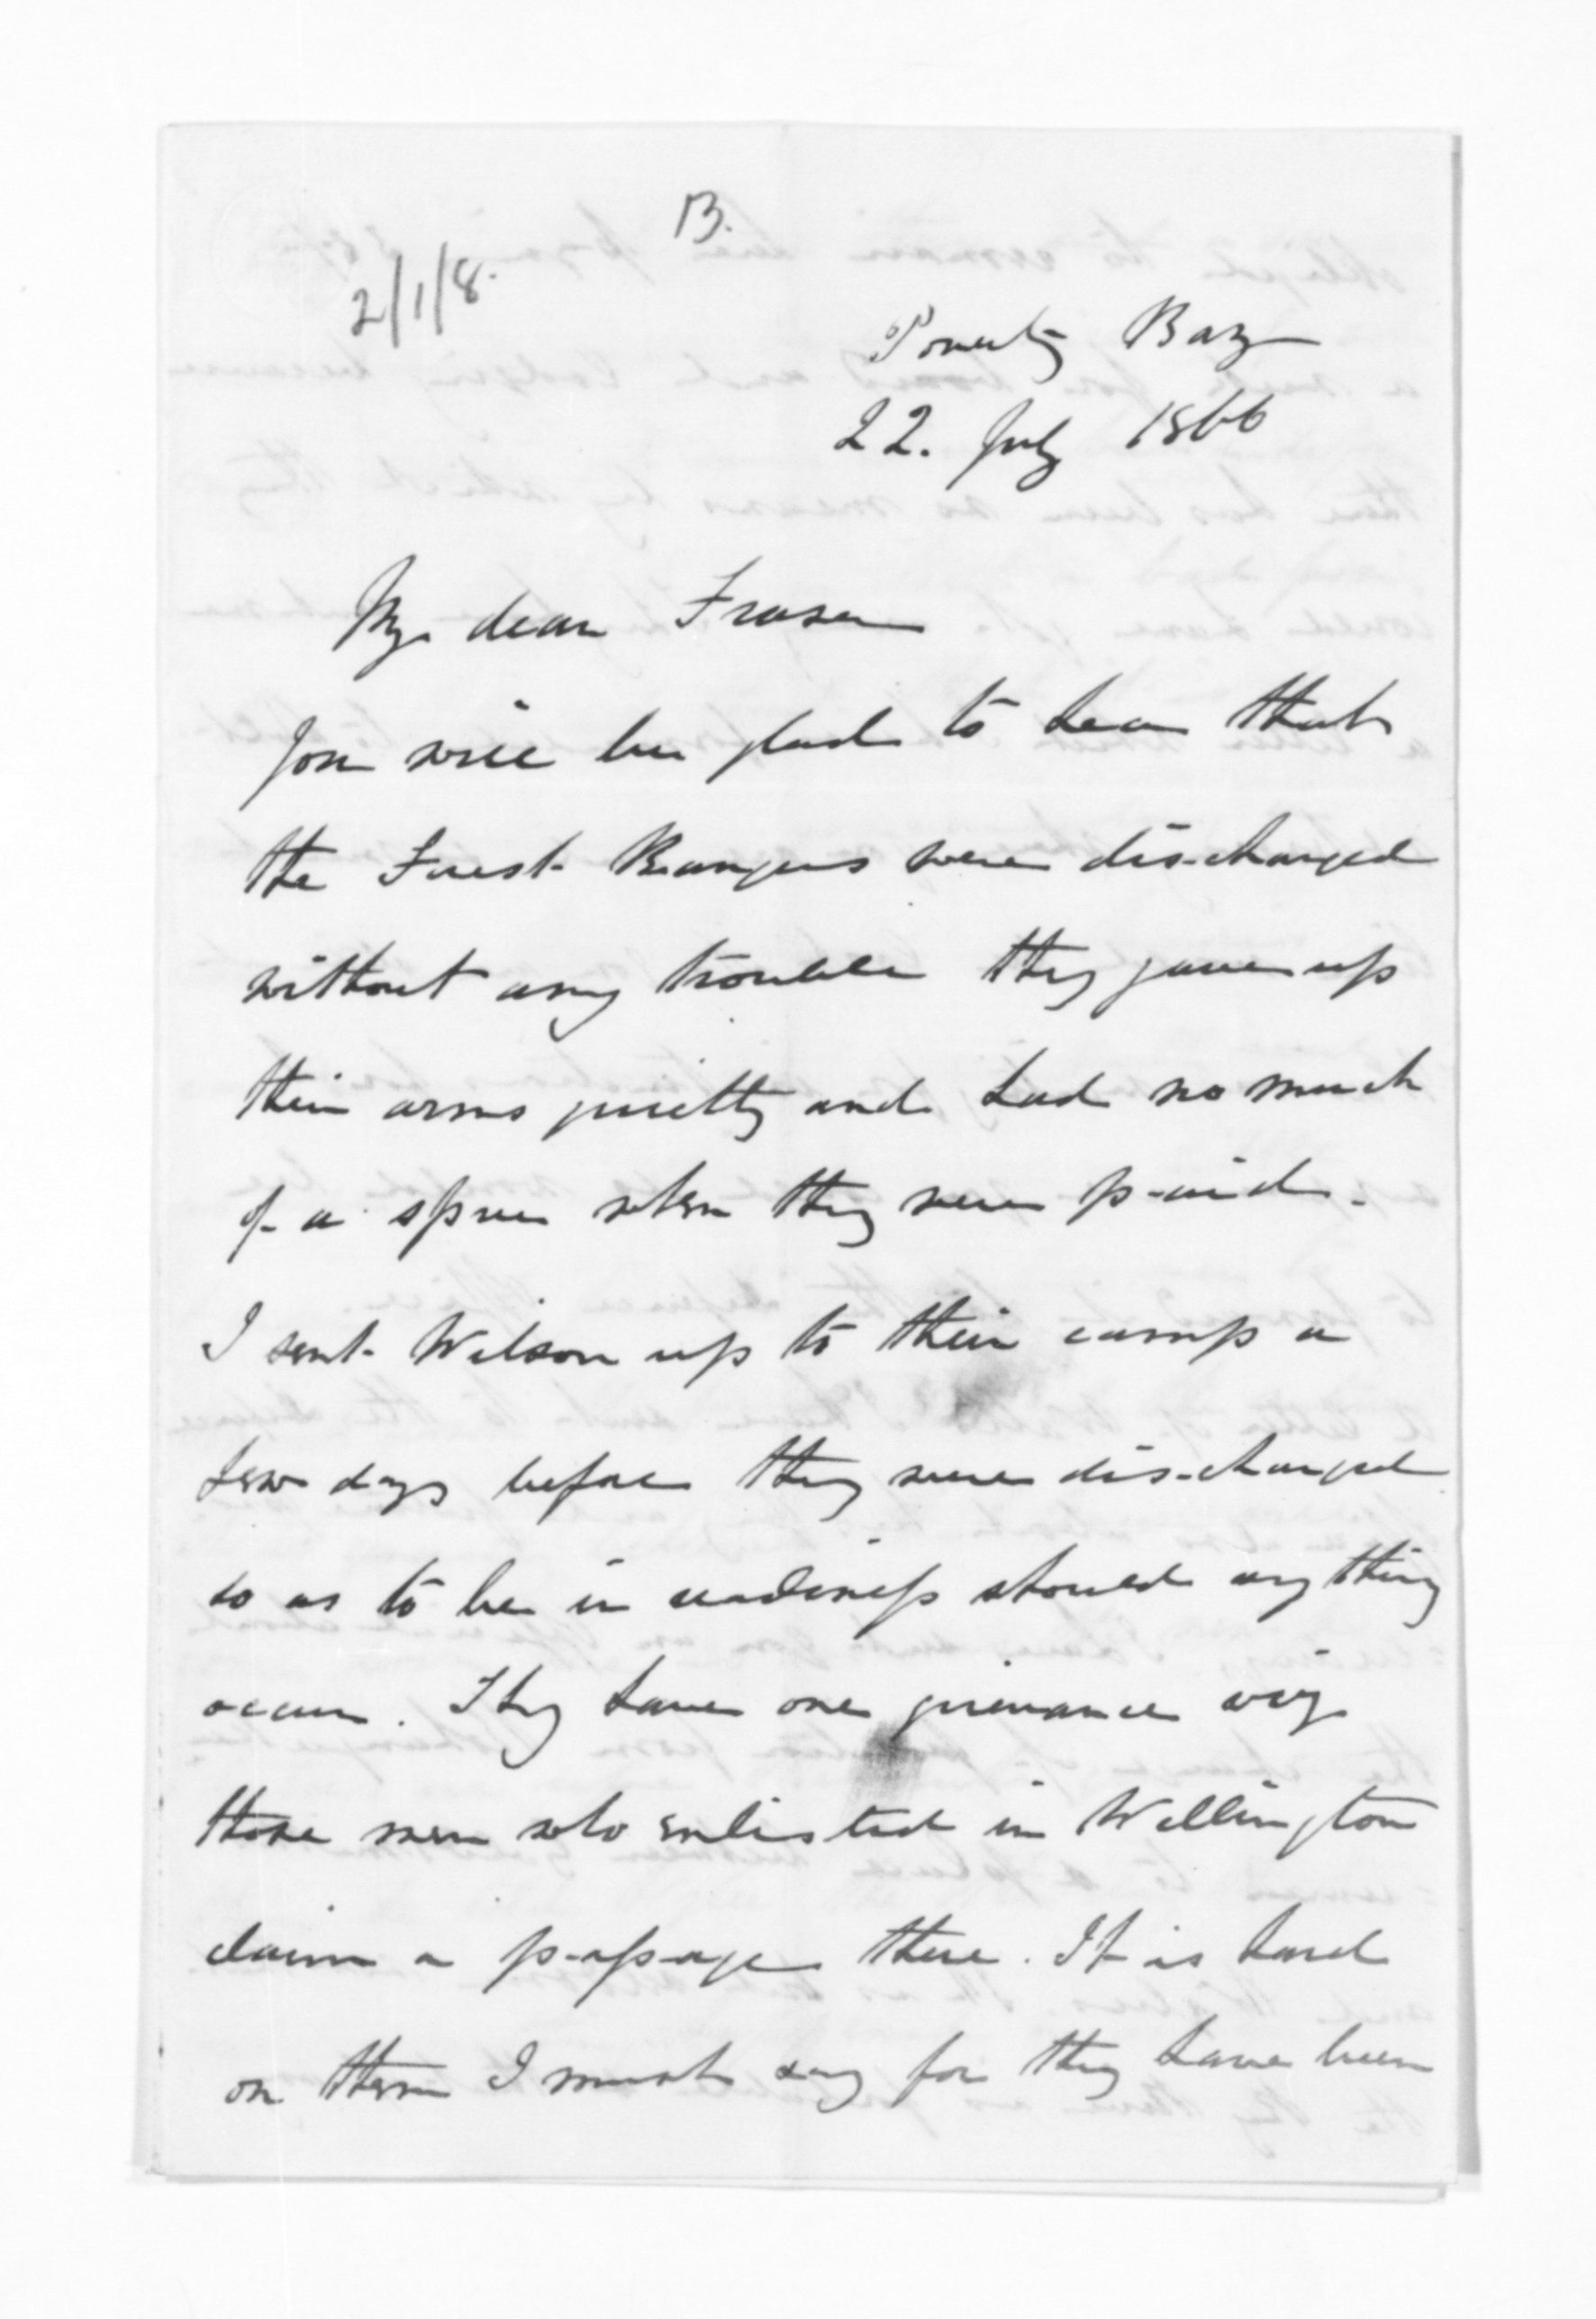 B.
2/1/8.
Poverty Bay
22. July 1866
My dear Fraser
You will be glad to hear that
the Forest Rangers were discharged
without any trouble they gave up
their arms quietly and had no much
of a spree when they were paid.
I sent Wilson up to their camp a
few days before they were discharged
so as to be in readiness should any thing
occur. They have one grievance viz
those men who enlisted in Wellington
claim a passage there. It is hard
on them I must say for they have been